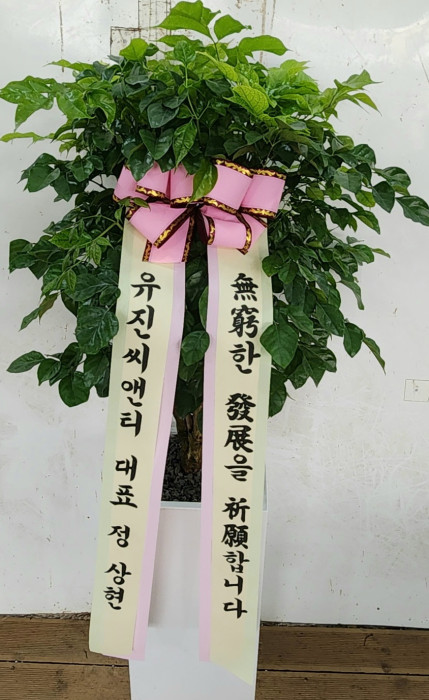 無窮한 發展을 祈願합니다
유진씨앤티 대표 정상현